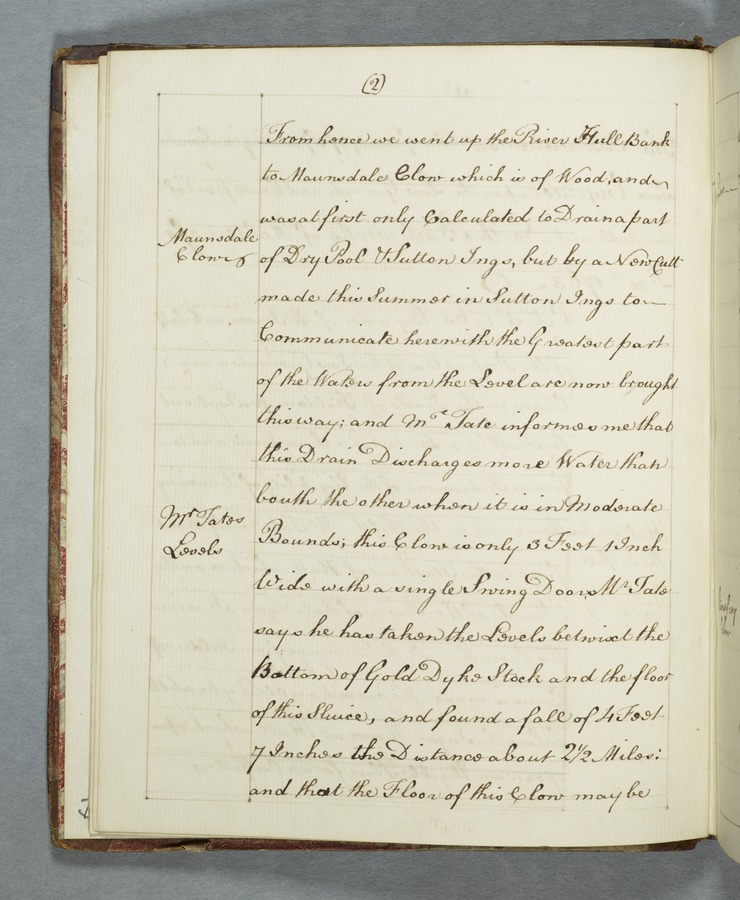 (2)
From hence we went up the River Hull Bank
to Maunsdale Clow which is of Wood, and
was at first only Calculated to Drain a part
Maunsdale
Clow
of Dry Pool & Sutton Ings, but by a New Cutt
made this Summer in Sutton Ings to
Communicate herewith the Greatest part
of the Waters from the Level are now brought
this way; and Mr Tate informes me that
this Drain Discharges more Water than
bouth the other when it is in Moderate
Mr Tates
Levels
Bounds; this Clow is only 3 Feet 1 Inch
Wide with a single Swing Door, Mr Tate
says he has taken the Levels betwixt the
Bottom of Gold Dyke Stock and the floor
of this Sluice, and found a fall of 4 Feet
7 Inches the Distance about 2 1/2 Miles:
and that the Floor of this Clow may be